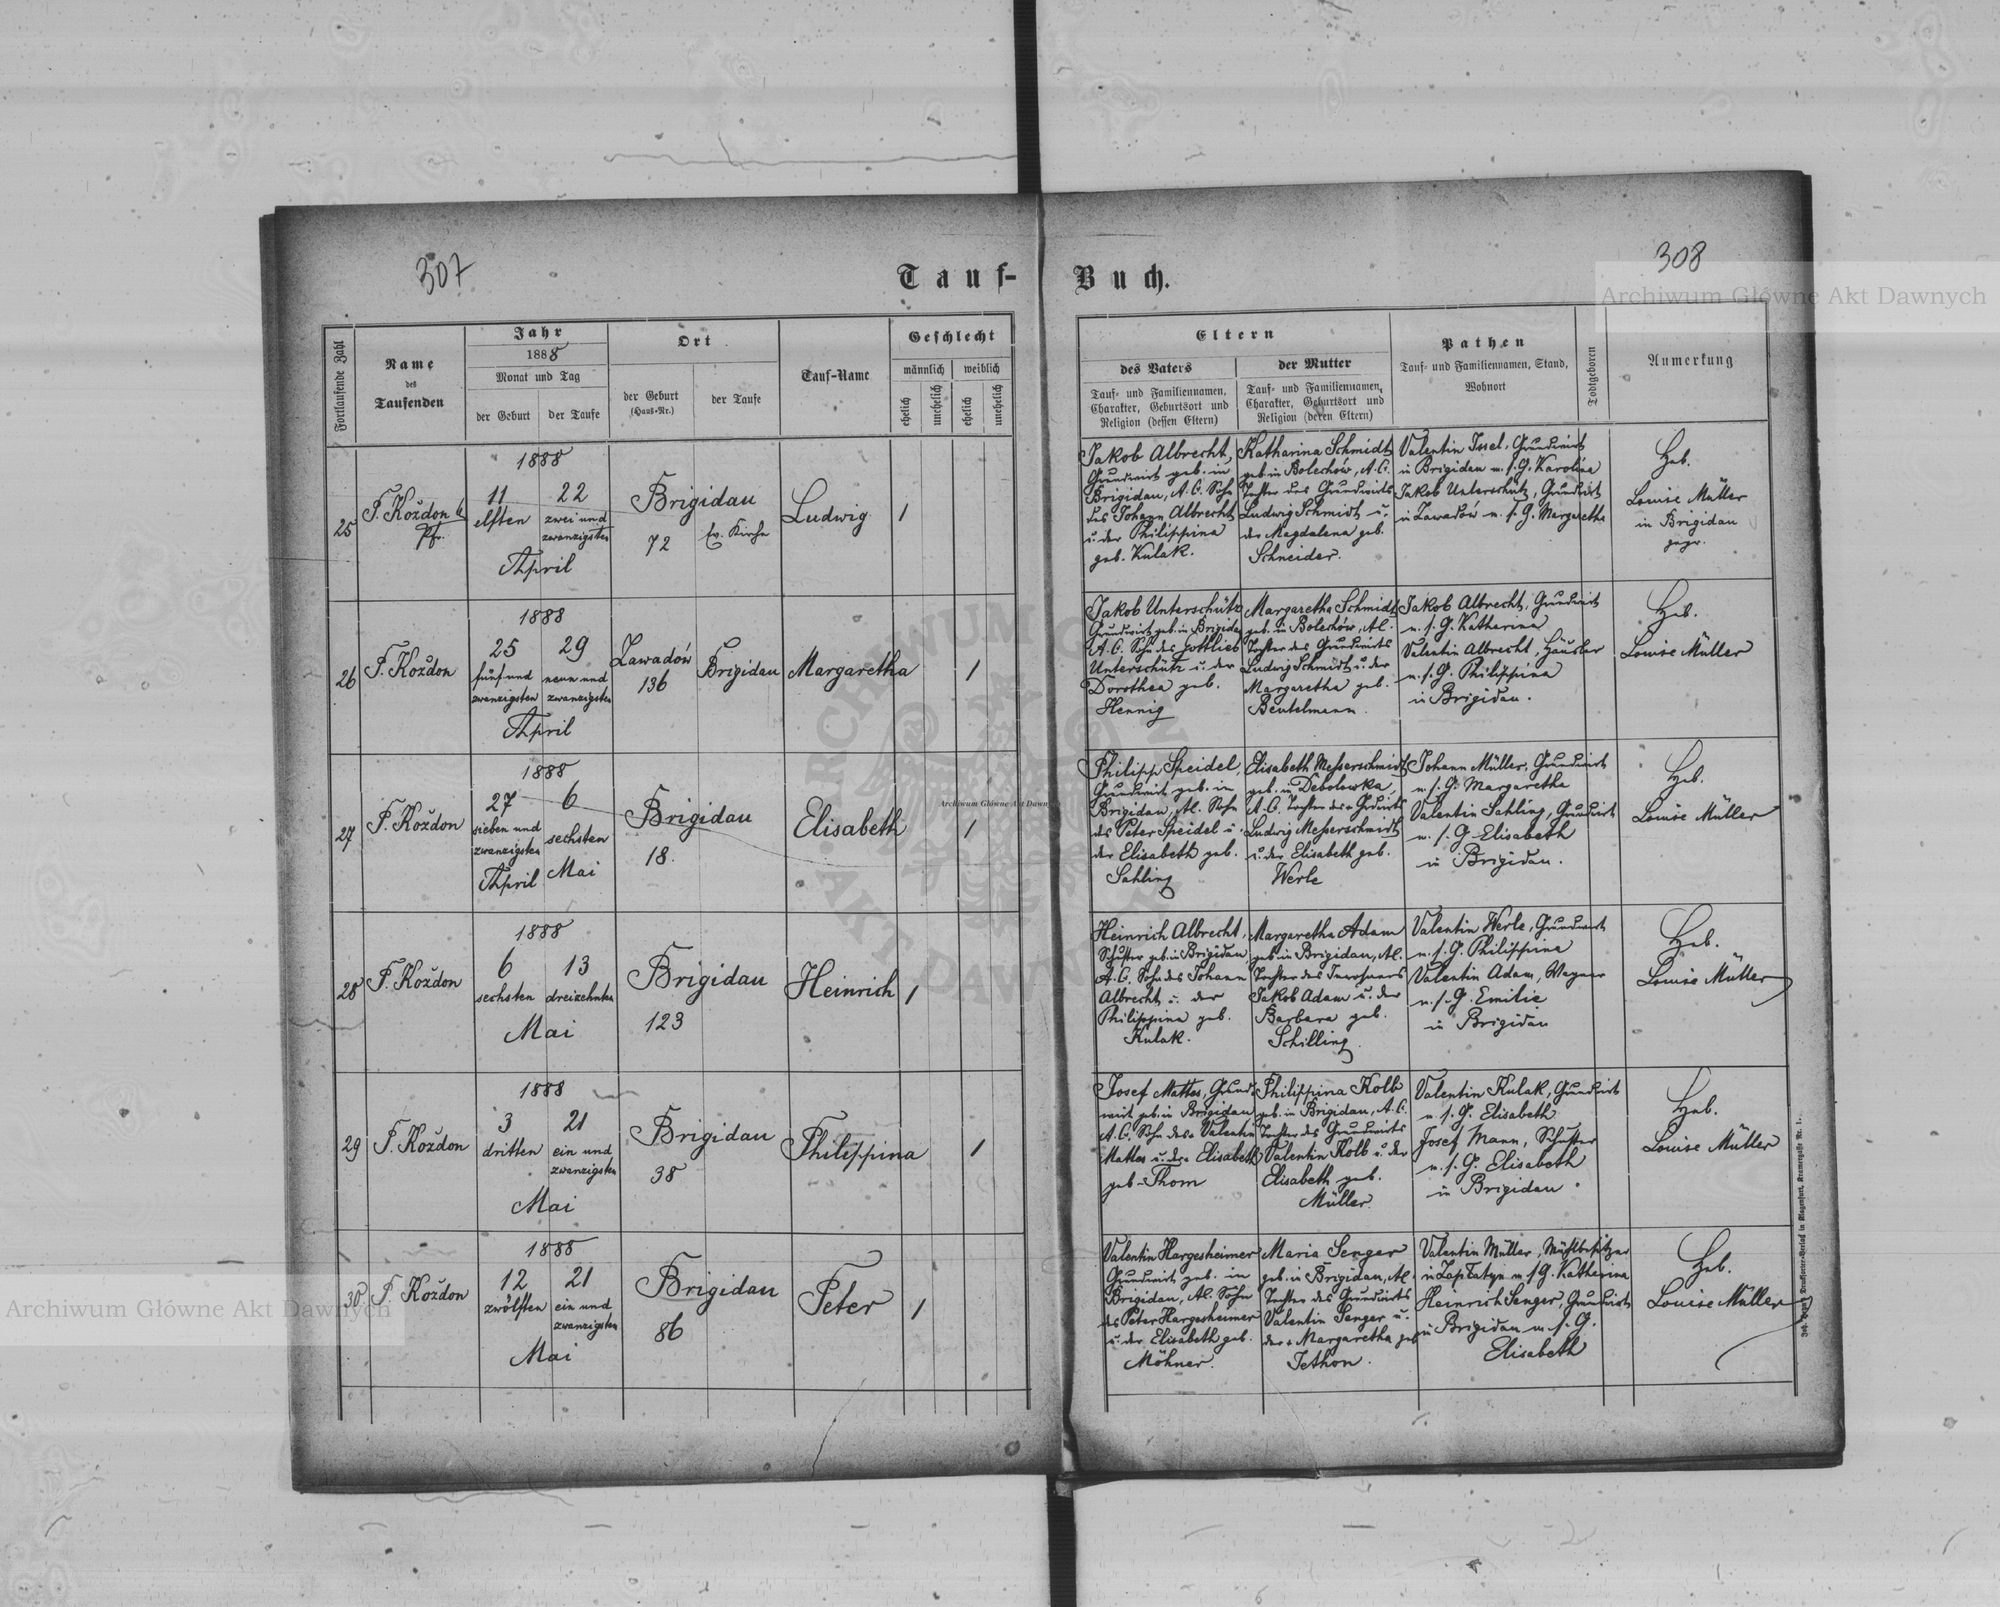 307
308
Tauf-Buch.
Archiwum Główne Akt Dawnych
Fortlaufende Zahl
Name
des
Taufenden
Jahr
1888
Monat und Tag
der Geburt
der Taufe
Ort
der Geburt
(Haus-Nr.)
der Taufe
Tauf-Name
Geschlecht
männlich
weiblich
ehelich
unehelich
ehelich
unehelich
Eltern
des Vaters
Tauf- und Familiennamen,
Charakter, Geburtsort und
Religion (dessen Eltern)
der Mutter
Tauf- und Familiennamen,
Charakter, Geburtsort und
Religion (deren Eltern)
Pathen
Tauf- und Familiennamen, Stand,
Wohnort
Todtgeboren
Anmerkung
25
F. Kożdon
Pfr.
1888
11
elften
22
zwei und
zwanzigsten
April
Brigidau
72
Ev. Kirche
Ludwig
1
Jakob Albrecht,
Grundwirt geb. in
Brigidau, A.C. Sohn
des Johann Albrecht
u. der Philippina
geb. Kulak.
Katharina Schmidt
geb. in Bolechów, A.C.
Tochter des Grundwirts
Ludwig Schmidt u.
der Magdalena geb.
Schneider.
Valentin Issel, Grundwirt
in Brigidau u. s. G. Karolina
Jakob Unterschütz, Grundwirt
in Zawadów u. s. G. Margaretha
Heb.
Louise Müller
in Brigidau
gepr.
26
F. Kożdon
1888
25
fünf und
zwanzigsten
29
neun und
zwanzigsten
April
Zawadów
136
Brigidau
Margaretha
1
Jakob Unterschütz
Grundwirt geb. in Brigidau
A.C. Sohn des Gottlieb
Unterschütz u. der
Dorothea geb.
Hennig
Margaretha Schmidt
geb. in Bolechów, A.C.
Tochter des Grundwirts
Ludwig Schmidt u. der
Margaretha geb.
Beutelmann.
Jakob Albrecht, Grundwirt
u. s. G. Katharina
Valentin Albrecht, Häusler
u. s. G. Philippina
in Brigidau.
Heb.
Louise Müller
27
F. Kożdon
1888
27
sieben und
zwanzigsten
April
6
sechsten
Mai
Brigidau
18.
Elisabeth
1
Philipp Speidel,
Grundwirt geb. in
Brigidau, A.C. Sohn
des Peter Speidel u.
der Elisabeth geb.
Sahling
Elisabeth Messerschmidt
geb. in Debolowka,
A.C. Tochter des Grdwirts
Ludwig Messerschmidt
u. der Elisabeth geb.
Werle
Johann Müller, Grundwirt
u. s. G. Margaretha
Valentin Sahling, Grundwirt
u. s. G. Elisabeth
in Brigidau.
Heb.
Louise Müller
28
F. Kożdon
1888
6
sechsten
13
dreizehnten
Mai
Brigidau
123
Heinrich
1
Heinrich Albrecht,
Schuster geb. in Brigidau,
A.C. Sohn des Johann
Albrecht u. der
Philippina geb.
Kulak.
Margaretha Adam
geb. in Brigidau, A.C.
Tochter des
Jakob Adam u. der
Barbara geb.
Schilling.
Valentin Werle, Grundwirt
u. s. G. Philippina
Valentin Adam, Wagner
u. s. G. Emilie
in Brigidau
Heb.
Louise Müller
29
F. Kożdon
1888
3
dritten
21
ein und
zwanzigsten
Mai
Brigidau
38
Philippina
1
Josef Mattes, Grund-
wirt geb. in Brigidau
A.C. Sohn des Valentin
Mattes u. der Elisabeth
geb. Thom
Philippina Kolb
geb. in Brigidau, A.C.
Tochter des Grundwirts
Valentin Kolb u. der
Elisabeth geb.
Müller.
Valentin Kulak, Grundwirt
u. s. G. Elisabeth
Josef Mann, Schuster
u. s. G. Elisabeth
in Brigidau.
Heb.
Louise Müller
30
F. Kożdon
1888
12
zwölften
21
ein und
zwanzigsten
Mai
Brigidau
86
Peter
1
Valentin Hargesheimer
Grundwirt geb. in
Brigidau, A.C. Sohn
des Peter Hargesheimer
u. der Elisabeth geb.
Möhner.
Maria Senger
geb. in Brigidau, A.C.
Tochter des Grundwirts
Valentin Senger u.
der Margaretha geb.
Jethon.
Valentin Müller, Mühlbesitzer
in Zaplatyn u. s. G. Katharina
Heinrich Senger, Grundwirt
in Brigidau u. s. G.
Elisabeth
Heb.
Louise Müller
Archiwum Główne Akt Dawnych
Archiwum Główne Akt Dawnych